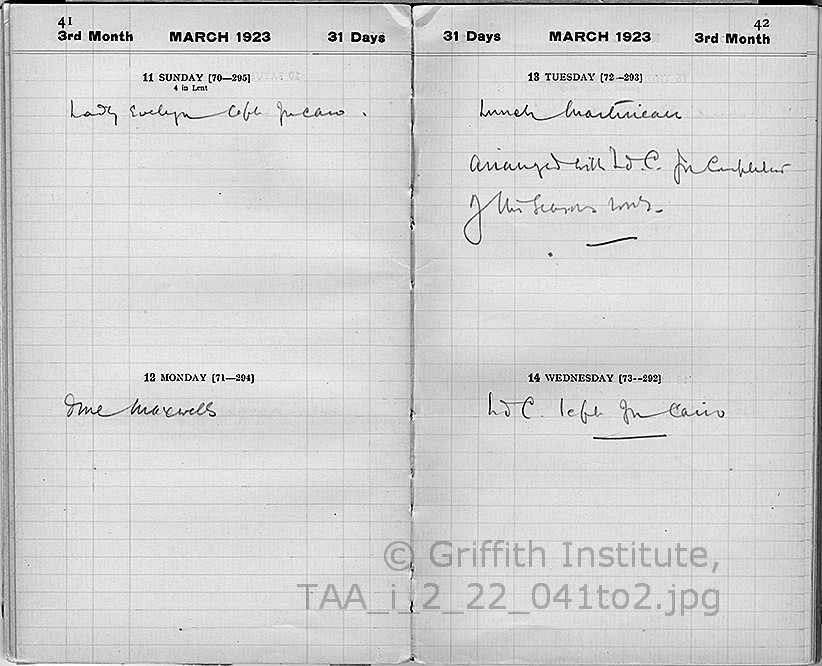 41
3rd Month MARCH 1923 31 Days
11 SUNDAY [70—295]
4 in Lent
Lady Evelyn left for Cairo.
12 MONDAY [71—294]
Dine Maxwells
42
31 Days MARCH 1923 3rd Month
13 TUESDAY [72—293]
Lunch Martineau
Arranged with Ld. C. for Completion
of this Seasons work.
14 WEDNESDAY [73—292]
Ld C. left for Cairo
© Griffith Institute,
TAA_i_2_22_041to2.jpg